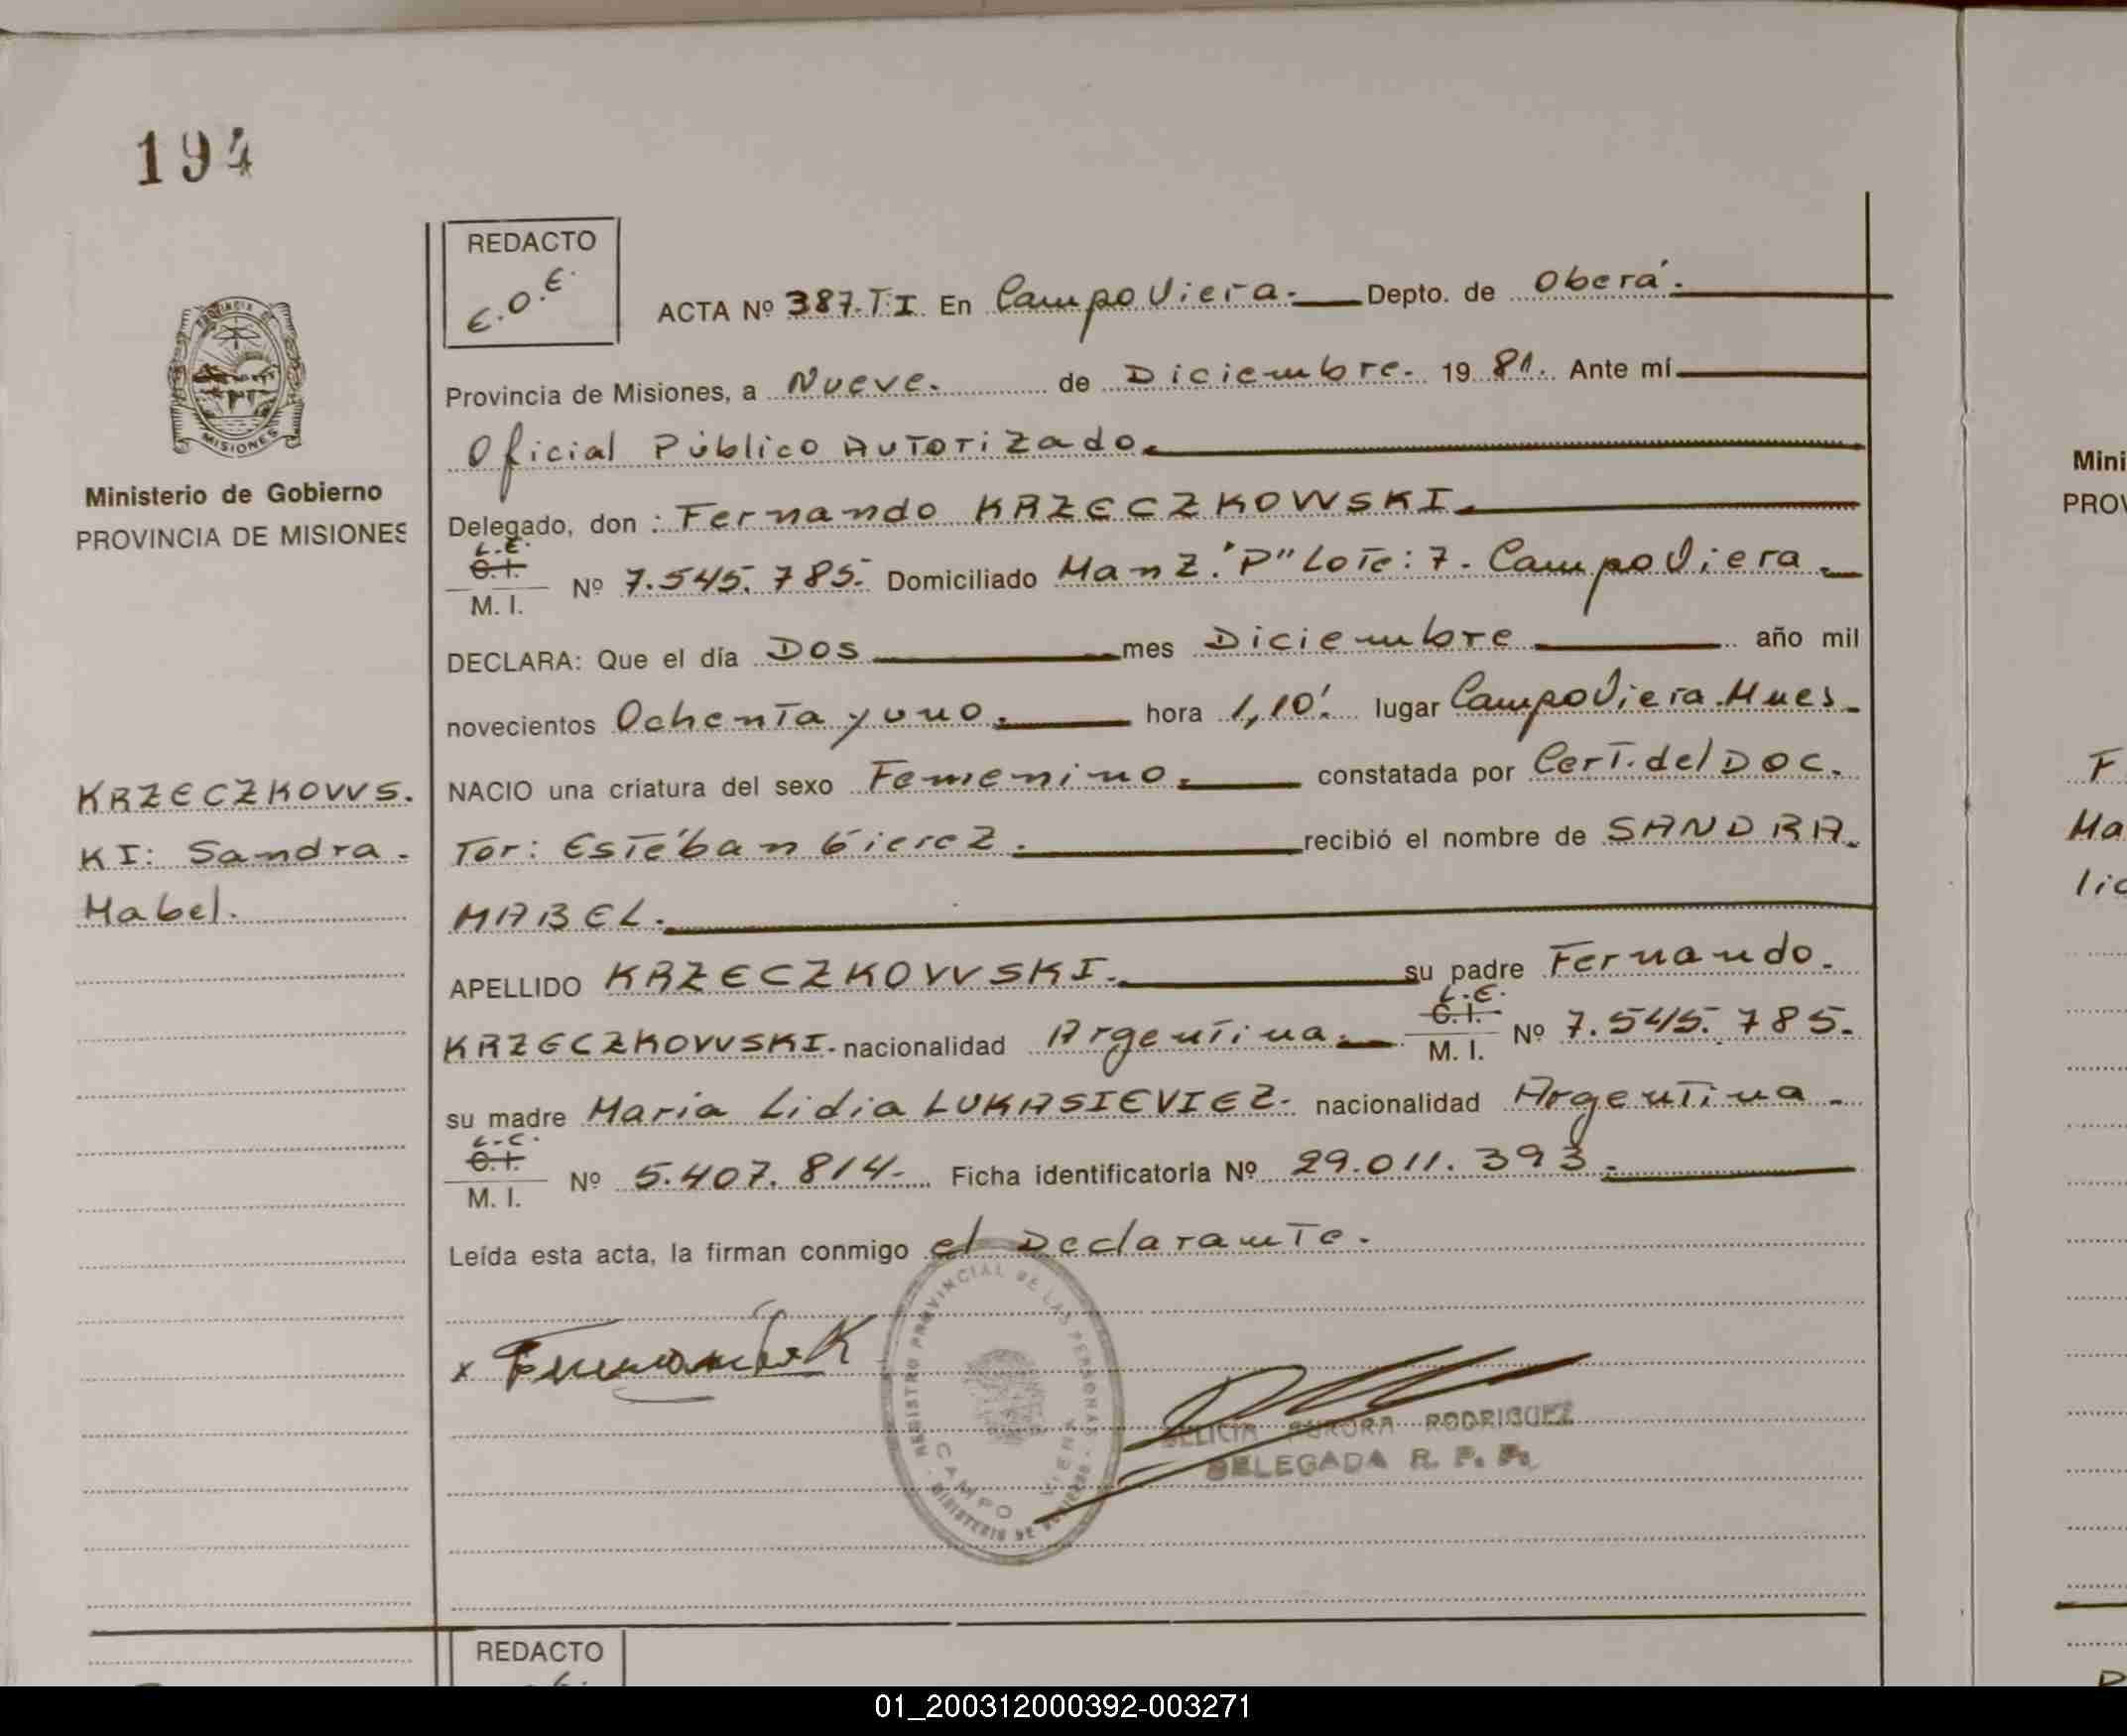 194
REDACTO
E.O.E.
ACTA Nº 387.T.I. En Campo Viera. Depto. de Oberá.
Provincia de Misiones, a Nueve. de Diciembre. 19 81. Ante mí
Oficial Público Autorizado.
Delegado, don : Fernando KRZECZKOWSKI.
L.E.
C.I.
M. I. Nº 7.545.785. Domiciliado Manz. "P" Lote: 7. Campo Viera.
DECLARA: Que el día Dos mes Diciembre año mil
novecientos Ochenta y uno. hora 1,10'. lugar Campo Viera. Mnes.
NACIO una criatura del sexo Femenino. constatada por Cert. del Doc.
Tor: Estéban Gierez. recibió el nombre de SANDRA.
MABEL.
APELLIDO KRZECZKOWSKI. su padre Fernando.
KRZECZKOWSKI. nacionalidad Argentina. L.E. C.I. M. I. Nº 7.545.785.
su madre Maria Lidia LUKASIEVIEZ. nacionalidad Argentina.
L.C.
C.I.
M. I. Nº 5.407.814. Ficha identificatoria Nº 29.011.393.
Leída esta acta, la firman conmigo el Declarante.
x Fernando K
REGISTRO PROVINCIAL DE LAS PERSONAS
CAMPO VIERA
MINISTERIO DE GOBIERNO
DELICIA AURORA RODRIGUEZ
DELEGADA R. P. P.
PROVINCIA DE
MISIONES
Ministerio de Gobierno
PROVINCIA DE MISIONES
KRZECZKOWS.
KI: Sandra.
Mabel.
REDACTO
Mini
PROV
F
Ma
lid
01_200312000392-003271